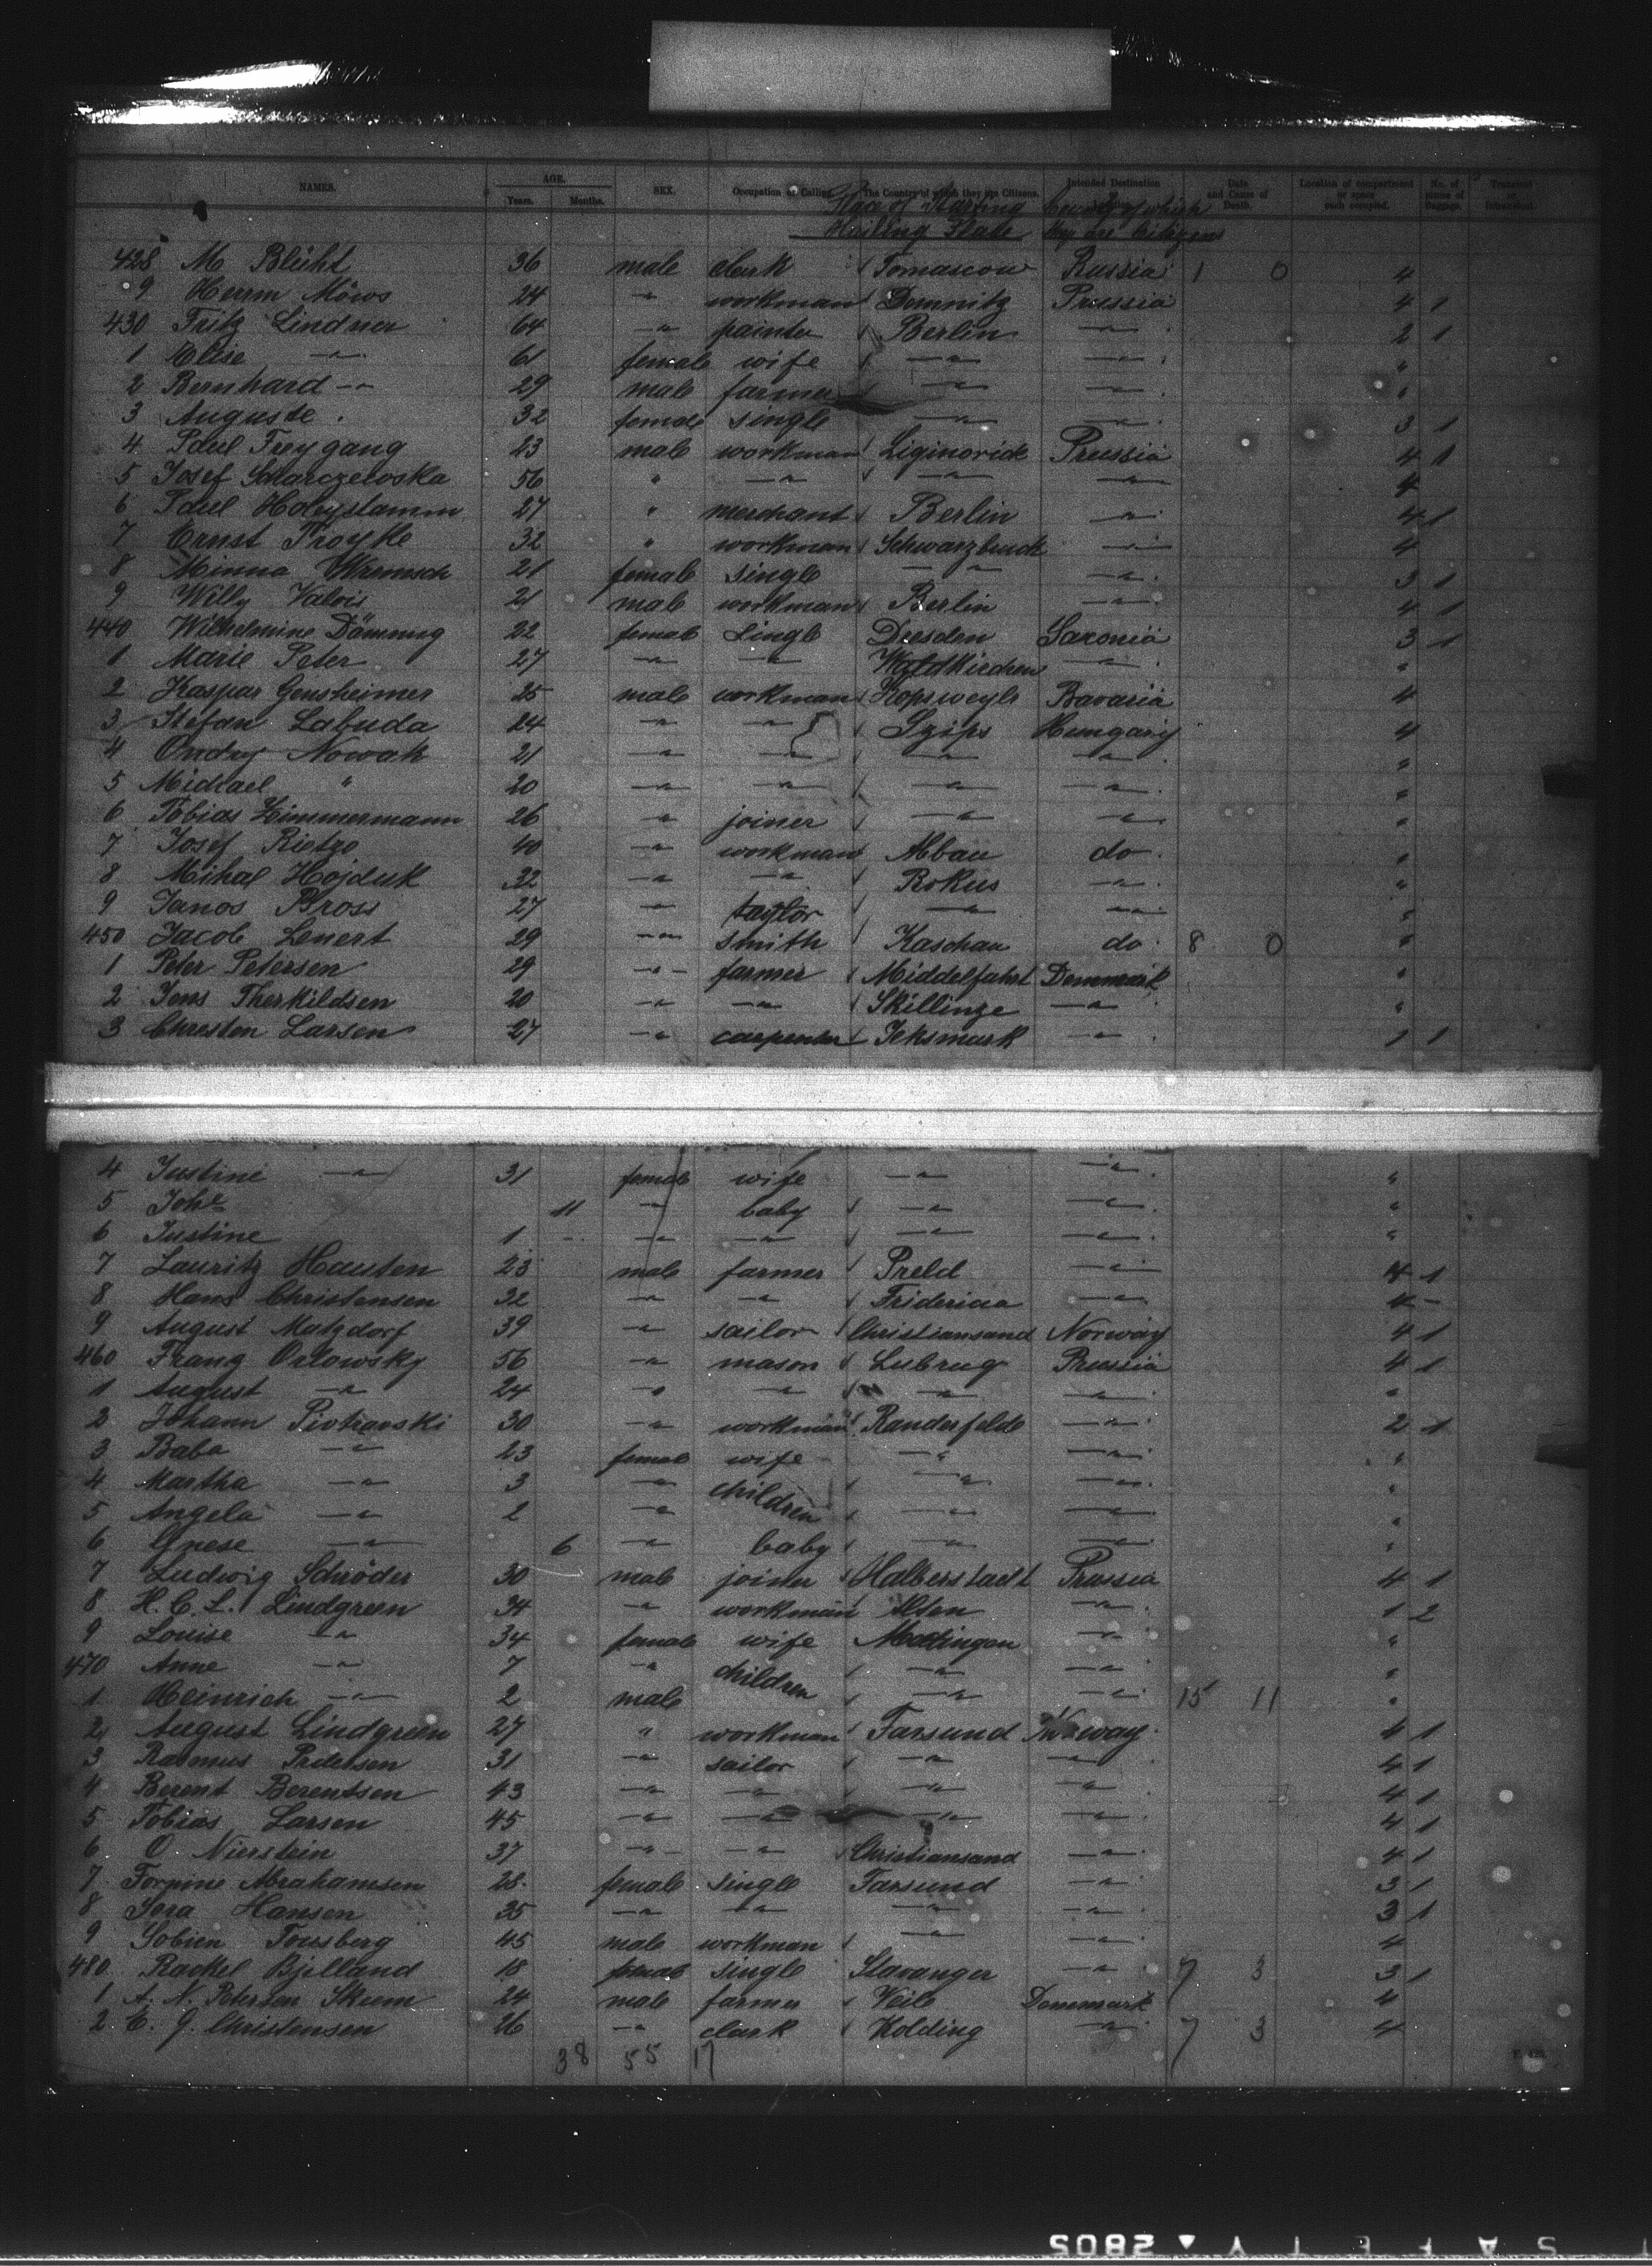 NAMES. AGE. Years. Months. SEX. Occupation or Calling. The Country of which they are Citizens. Intended Destination Date and Cause of Death. Location of compartment or space each occupied. No. of pieces of Baggage. Transient
Place of Starting Country of which
Hailing State they are Citizens
428 M Blüht 36 male clerk Tomascow Russia 1 0 4
9 Herrm Möws 24 " workman Domnitz Prussia 4 1
430 Fritz Lindner 64 " painter Berlin " 2 1
1 Elise " 61 female wife " " "
2 Bernhard " 29 male farmer " " "
3 Auguste 32 female single " " 3 1
4 Paul Freygang 23 male workman Prussia 4 1
5 Josef 56 " " " " 4
6 Paul 27 " merchant Berlin " 4 1
7 Ernst Troyke 32 " workman " 4
8 Minna 21 female single " " 3 1
9 Willy Valois 21 male workman Berlin " 4 1
440 Wilhelmine Dömming 22 female single Dresden Saxonia 3 1
1 Marie Peter 27 " " Waldkirchen " "
2 Kaspar Gensheimer 25 male workman Bavaria 4
3 Stefan Labuda 24 " " Szips Hungary 4
4 Ondry Nowak 21 " " " " "
5 Michael " 20 " " " " "
6 Tobias Zimmermann 26 " joiner " " "
7 Josef Rietzo 40 " workman Abbau do "
8 Mihal Hojduk 32 " " Rokus " "
9 Janos Bross 27 " taylor " " "
450 Jacob Lenert 29 " smith Kaschau do 8 0 "
1 Peter Petersen 29 " farmer Middelfahrt Denmark "
2 Jens Therkildsen 20 " " Skillinge " "
3 Chresten Larsen 27 " carpenter Jeksmark " 1 1
4 Justine " 31 female wife " " "
5 Johe 11 " baby " " "
6 Justine 1 " " " " "
7 Lauritz Hansten 23 male farmer Preld " 4 1
8 Hans Christensen 32 " " Fridericia " 4 -
9 August Matzdorf 39 " sailor Christiansand Norway 4 1
460 Franz Orlowsky 56 " mason Prussia 4 1
1 August " 24 " " " " "
2 Johann Piotrowski 30 " workman Randerfelde " 2 1
3 Baba " 23 female wife " " "
4 Martha " 3 " children " " "
5 Angela " 2 " " " "
6 Gnese " 6 " baby " " "
7 Ludwig Schröder 30 male joiner Halberstadt Prussia 4 1
8 H. C. L. Lindgreen 34 " workman Alten " 1 2
9 Louise " 34 female wife " "
470 Anne " 7 " children " " "
1 Heinrich " 2 male " " 15 11 "
2 August Lindgreen 27 " workman Farsund Norway 4 1
3 Rasmus Pedersen 31 " sailor " " 4 1
4 Berent Berentsen 43 " " " " 4 1
5 Tobias Larsen 45 " " " " 4 1
6 O. Nierstein 37 " " Christiansand " 4 1
7 Abrahamsen 28 female single Farsund " 3 1
8 Hansen 35 " " " " 3 1
9 45 male workman " " 4
480 Rackel Bjelland 18 female single Stavanger " 7 3 3 1
1 A. N. Petersen Skum 24 male farmer Veile Denmark 4
2 C. J. Christensen 26 " clerk Kolding " 7 3 4
38 55 17
SAFETY ▲ 2805